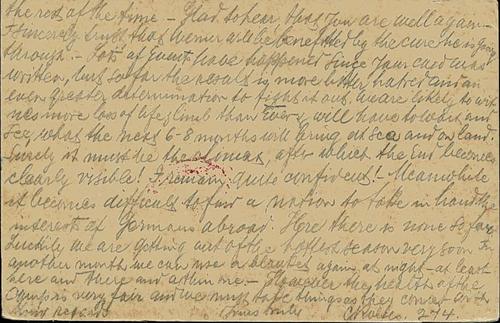 the rest of the time - Glad to hear, that you are well again -
Sincerely trust that Werner will be benefitted by the cure he is going
through. - Lots of Events have happened since your card was
written, but so far the result is more bitter hatred and an
even greater determination to fight it out. We are likely to wit
ness more loss of life & limb than Ever & will have to wait and
see what the next 6-8 months will bring at sea and on land.
Surely it must be the climax, after which the End becomes
clearly visible! I remain quite confident! Meanwhile
it becomes difficult to find a nation to take in hand the
interests of Germans abroad. Here there is none so far.
Luckily we are getting out of the hottest season very soon. In
another month we can use a blanket again at night - at least
here and there and a thin one. - However the health of the
Camp is very fair and we must take things as they come. With
kind regards Yours truly 274.